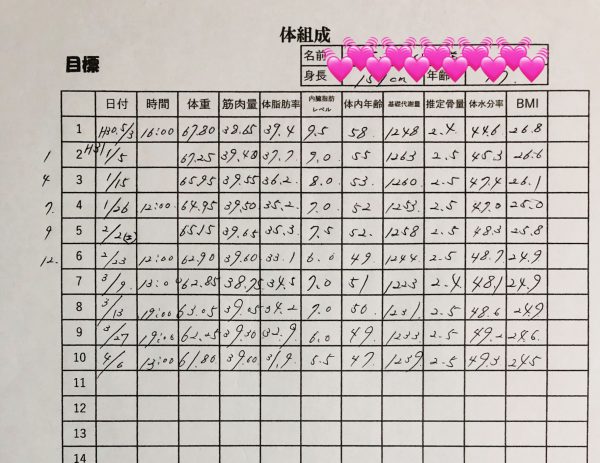 体組成
目標
名前
身長 cm 年齢
日付 時間 体重 筋肉量 体脂肪率 内臓脂肪レベル 体内年齢 基礎代謝量 推定骨量 体水分率 BMI
1 H30.5/3 16:00 67.80 38.65 39.4 9.5 58. 1248 2.4. 44.6 26.8
1 2 H31 1/5 67.25 39.40 37.7 9.0 55 1263 2.5 45.3 26.6
4 3 1/15 65.95 39.55 36.2. 8.0 53 1260 2.5 47.4 26.1
7. 4 1/26 12:00 64.95 39.50 35.2. 7.0 52 1253. 2.5 47.0 25.0
9 5 2/2(土) 65.15 39.65 35.3. 7.5 52. 1258 2.5 48.3 25.8
12. 6 2/23 12:00 62.90 39.60 33.1 6.0 49. 1244 2.5 48.7 24.9
7 3/9. 13:0 62.85 38.75 34.5 7.0 51 1223 2.4. 48.1 24.9
8 3/13 19:00 63.05 39.05 34.2 7.0 50. 1231. 2.5 48.6 24.9
9 3/27 19:00 62.25 39.30 32.9 6.0 49. 1233 2.5 49.2 24.6.
10 4/6 13:00 61.80 39.60 31.9. 5.5 47. 1239 2.5 49.3 24.5
11
12
13
14